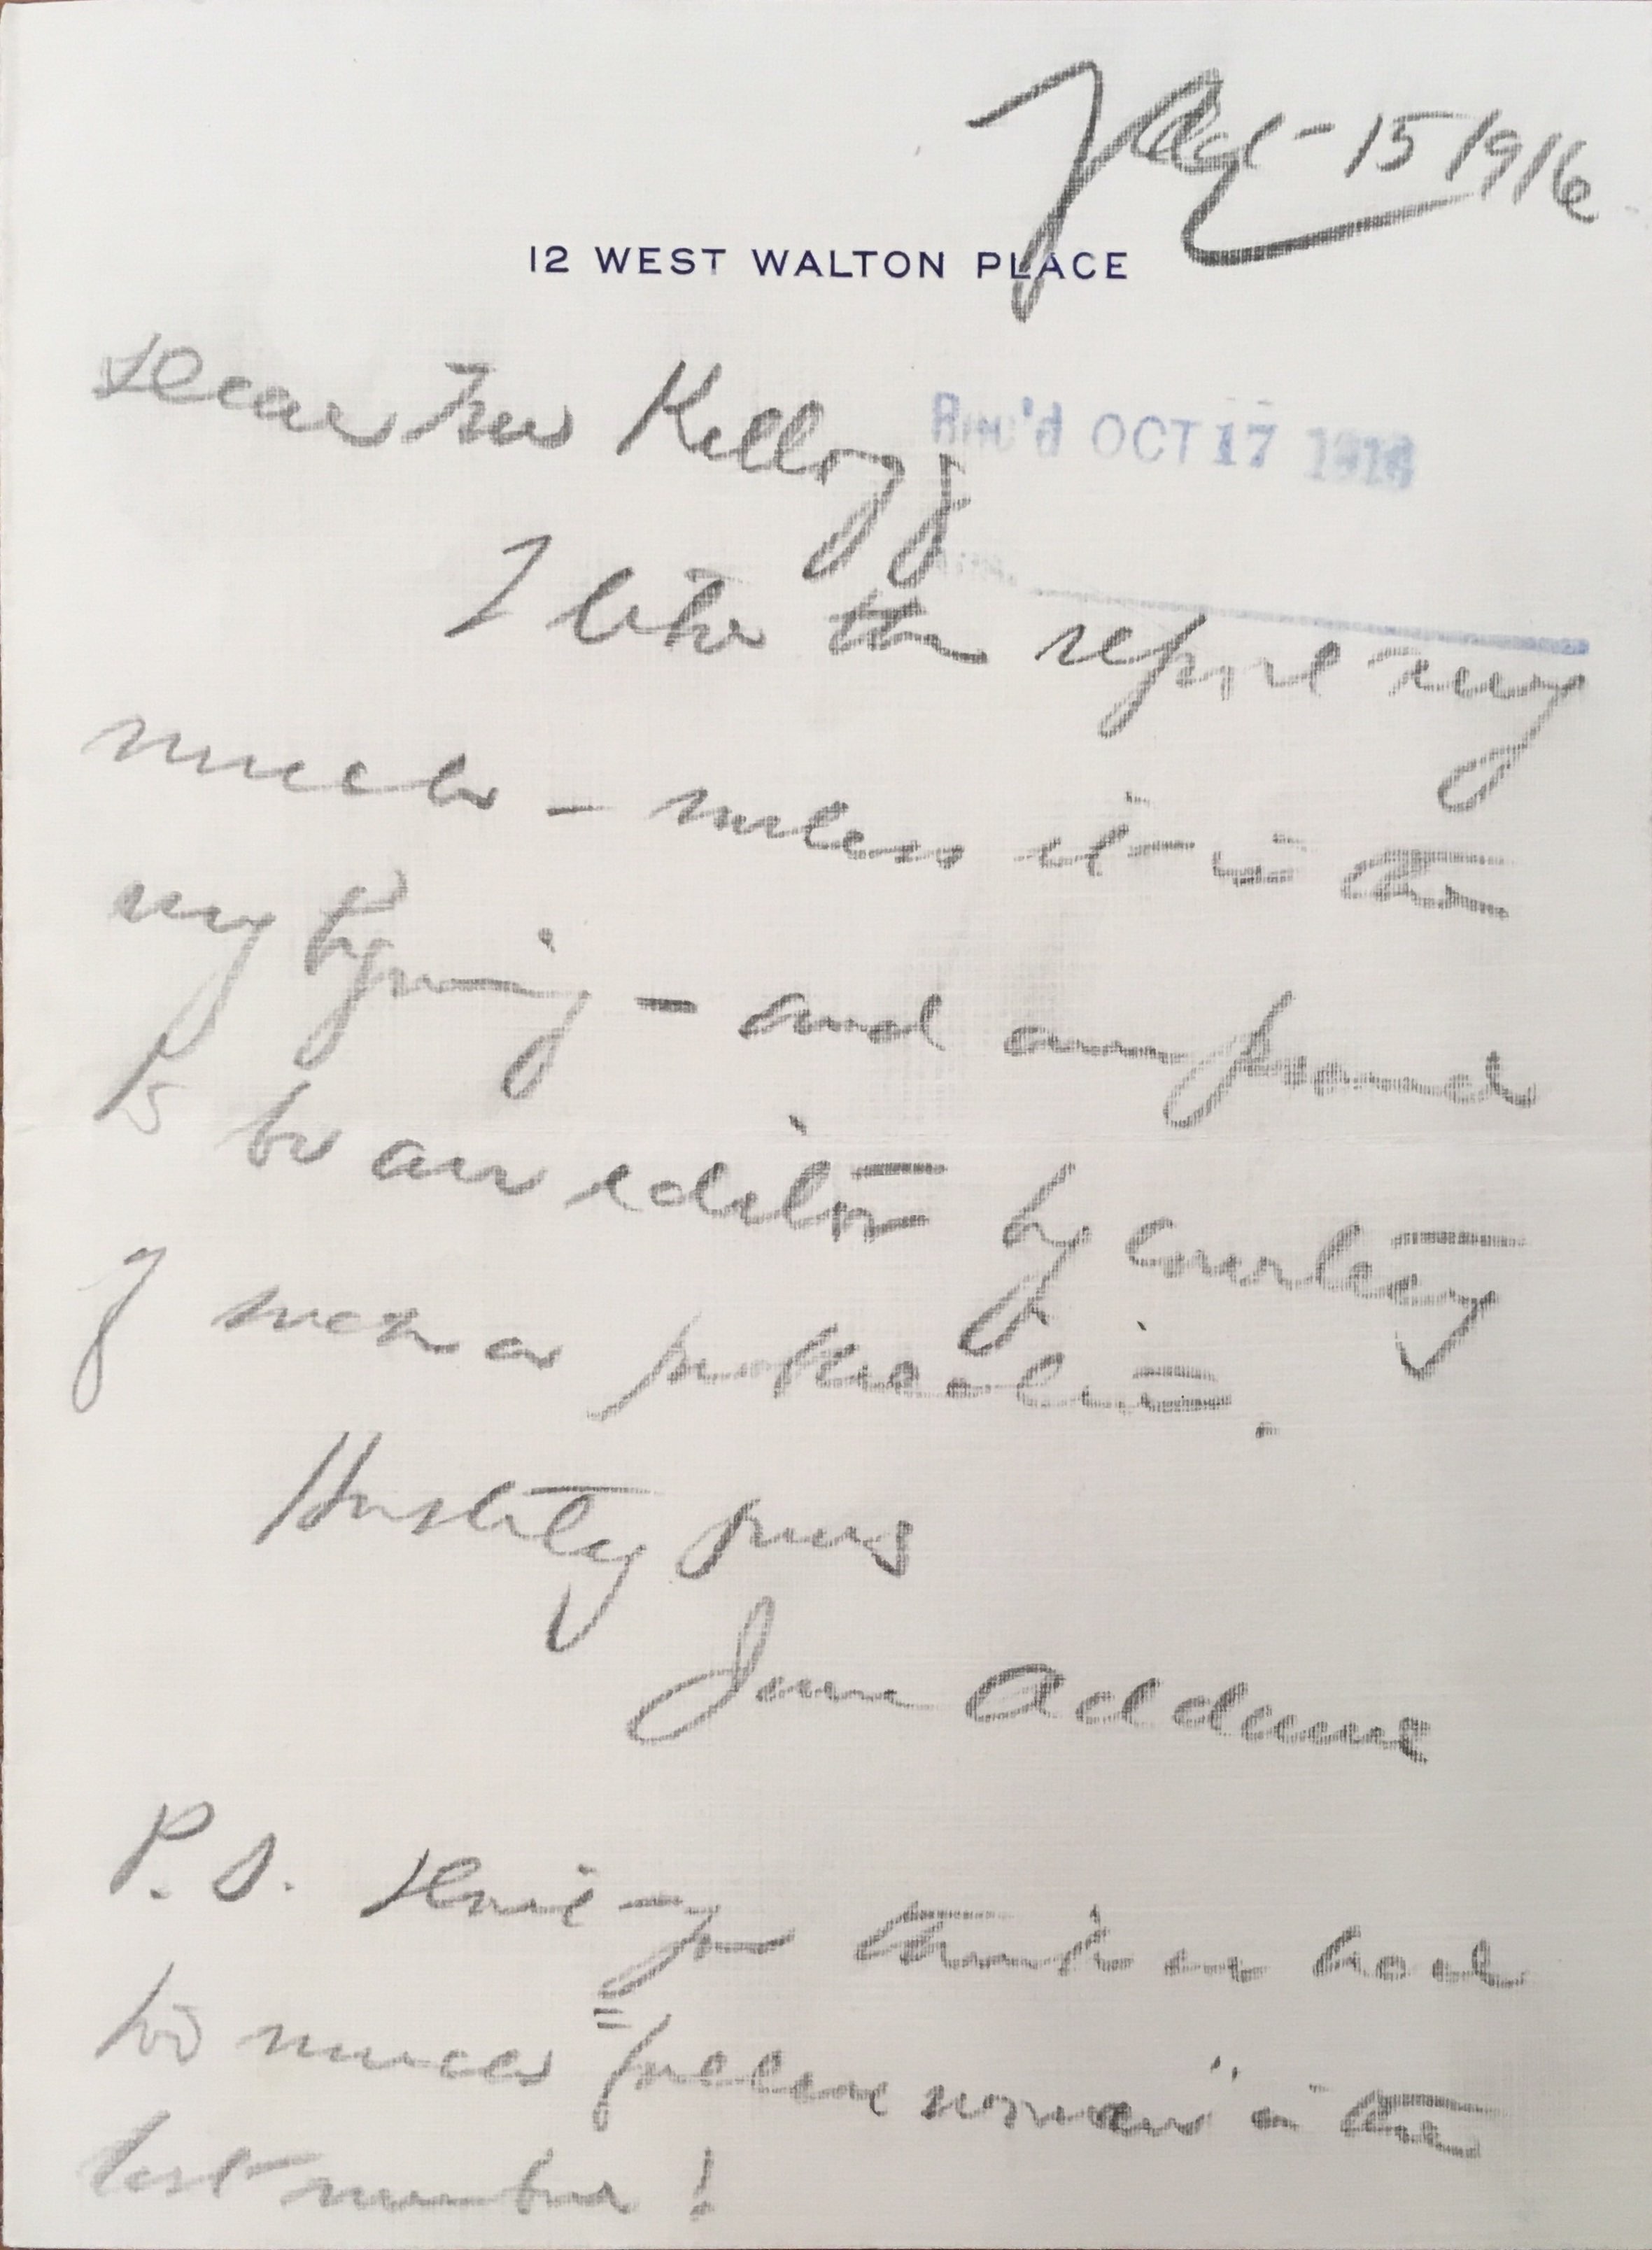 Oct - 15 1916
12 WEST WALTON PLACE
Dear Mr Kellogg
Rec'd OCT 17 1916
I like the report very
much - unless it is the
very beginning - and am proud
to be an editor by courtesy
of such a publication.
Hastily yours
Jane Addams
P.S. Don't you think we had
too much "fallen women" in the
last number!